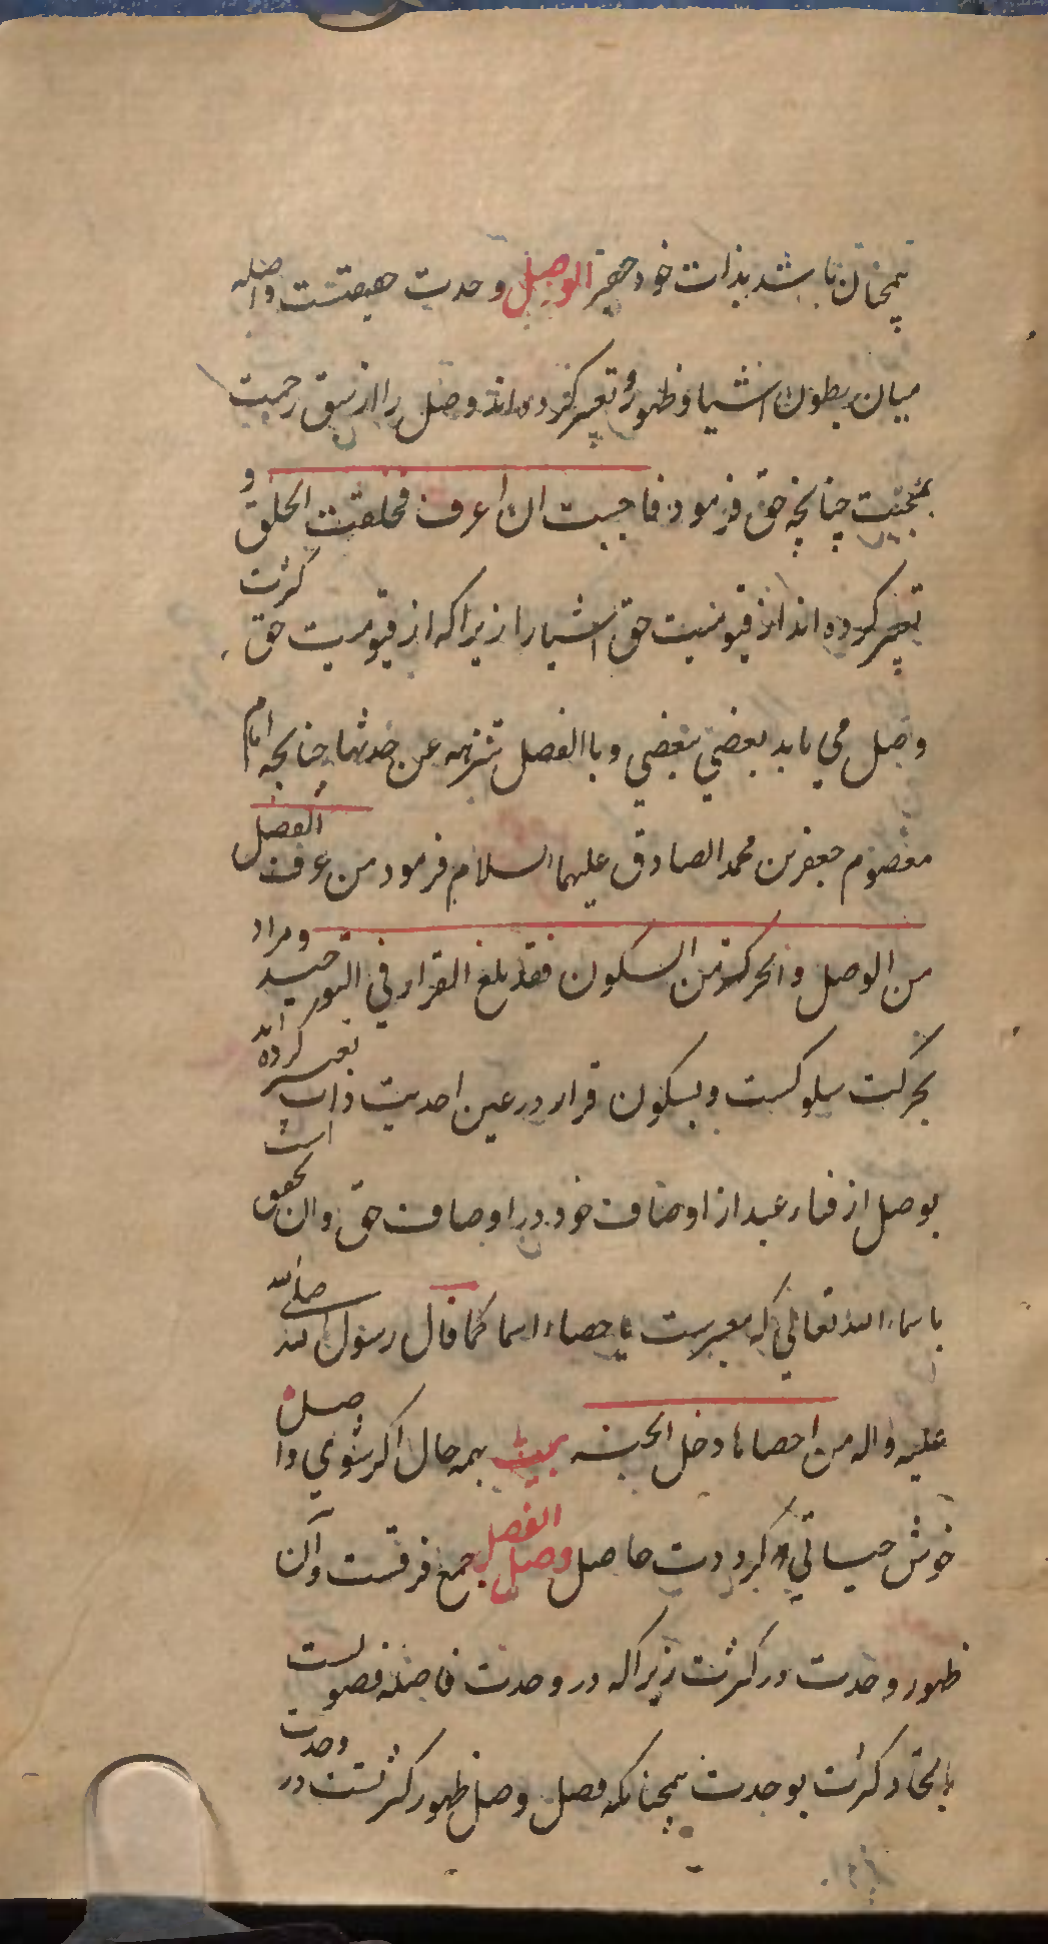 همچنان باشد بذات خود حقیر الوصل وحدت حقیقتست واصله
میان بطون اشیا و ظهور و تعبیر کرده‌اند وصل را از سبق رحمت
بمحبت چنانچه حق فرمود فاحببت ان اعرف فخلقت الخلق و
تعبیر کرده‌اند از قیومیت حق اشیا را زیرا که از قیومیت حق کثرت
وصل می یابد بعضی ببعضی و با الفصل تنزهه عن حدثها چنانچه امام
معصوم جعفر بن محمد الصادق علیهما السلام فرمود من عرف الفصل
من الوصل والحرکة من السکون فقد بلغ القرار فی التوحید و مراد
بحرکت سلوکست و بسکون قرار در عین احدیت ذات تعبیر کرده‌اند
بوصل از فناء عبد از اوصاف خود در اوصاف حق و ان تحقق است
باسماء الله تعالی که معبرست باحصاء اسما کما قال رسول الله صلی الله
علیه واله من احصاها دخل الجنه بیت بهمه حال اگر شوی واصل
خوش حیاتی که گرددت حاصل وصل الفصل جمع فرقست وآن
ظهور وحدت در کثرت زیرا که در وحدت فاصله فصولست
باتحاد کثرت بوحدت همچنانکه فصل وصل ظهور کثرتست در وحدت